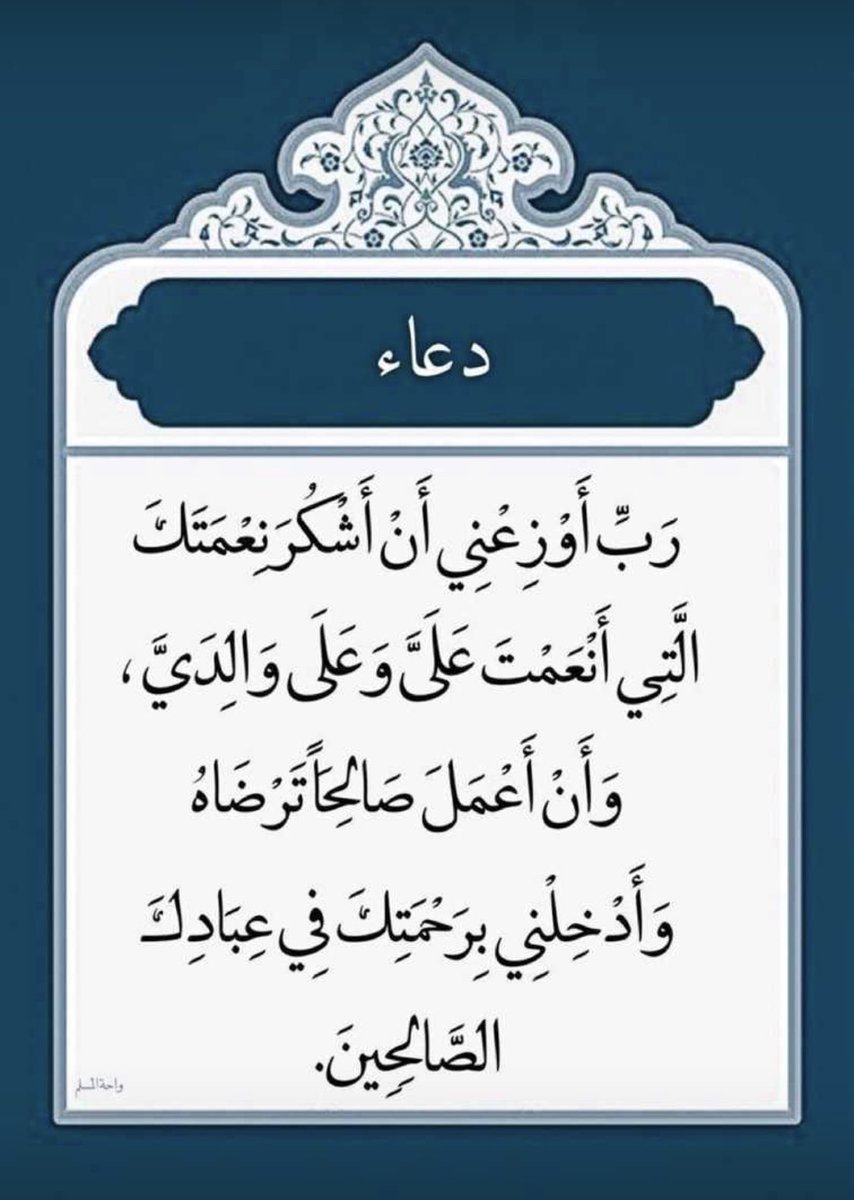 دعاء
رَبِّ أَوْزِعْنِي أَنْ أَشْكُرَ نِعْمَتَكَ
الَّتِي أَنْعَمْتَ عَلَيَّ وَعَلَى وَالِدَيَّ ،
وَأَنْ أَعْمَلَ صَالِحَاً تَرْضَاهُ
وَأَدْخِلْنِي بِرَحْمَتِكَ فِي عِبَادِكَ
الصَّالِحِينَ.
واحة المسلم